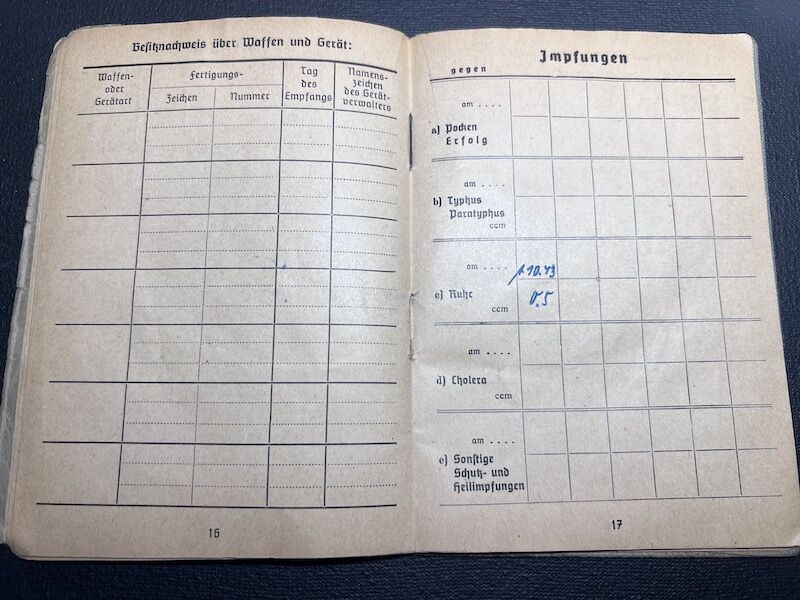 Besitznachweis über Waffen und Gerät:
Waffen-
oder
Gerätart
Fertigungs-
Zeichen
Nummer
Tag
des
Empfangs
Namens-
zeichen
des Gerät-
verwalters
16
Impfungen
gegen
am ....
a) Pocken
Erfolg
am ....
b) Typhus
Paratyphus
ccm
am ....
1.10.43
c) Ruhr
0.5
ccm
am ....
d) Cholera
ccm
am ....
e) Sonstige
Schutz- und
Heilimpfungen
17